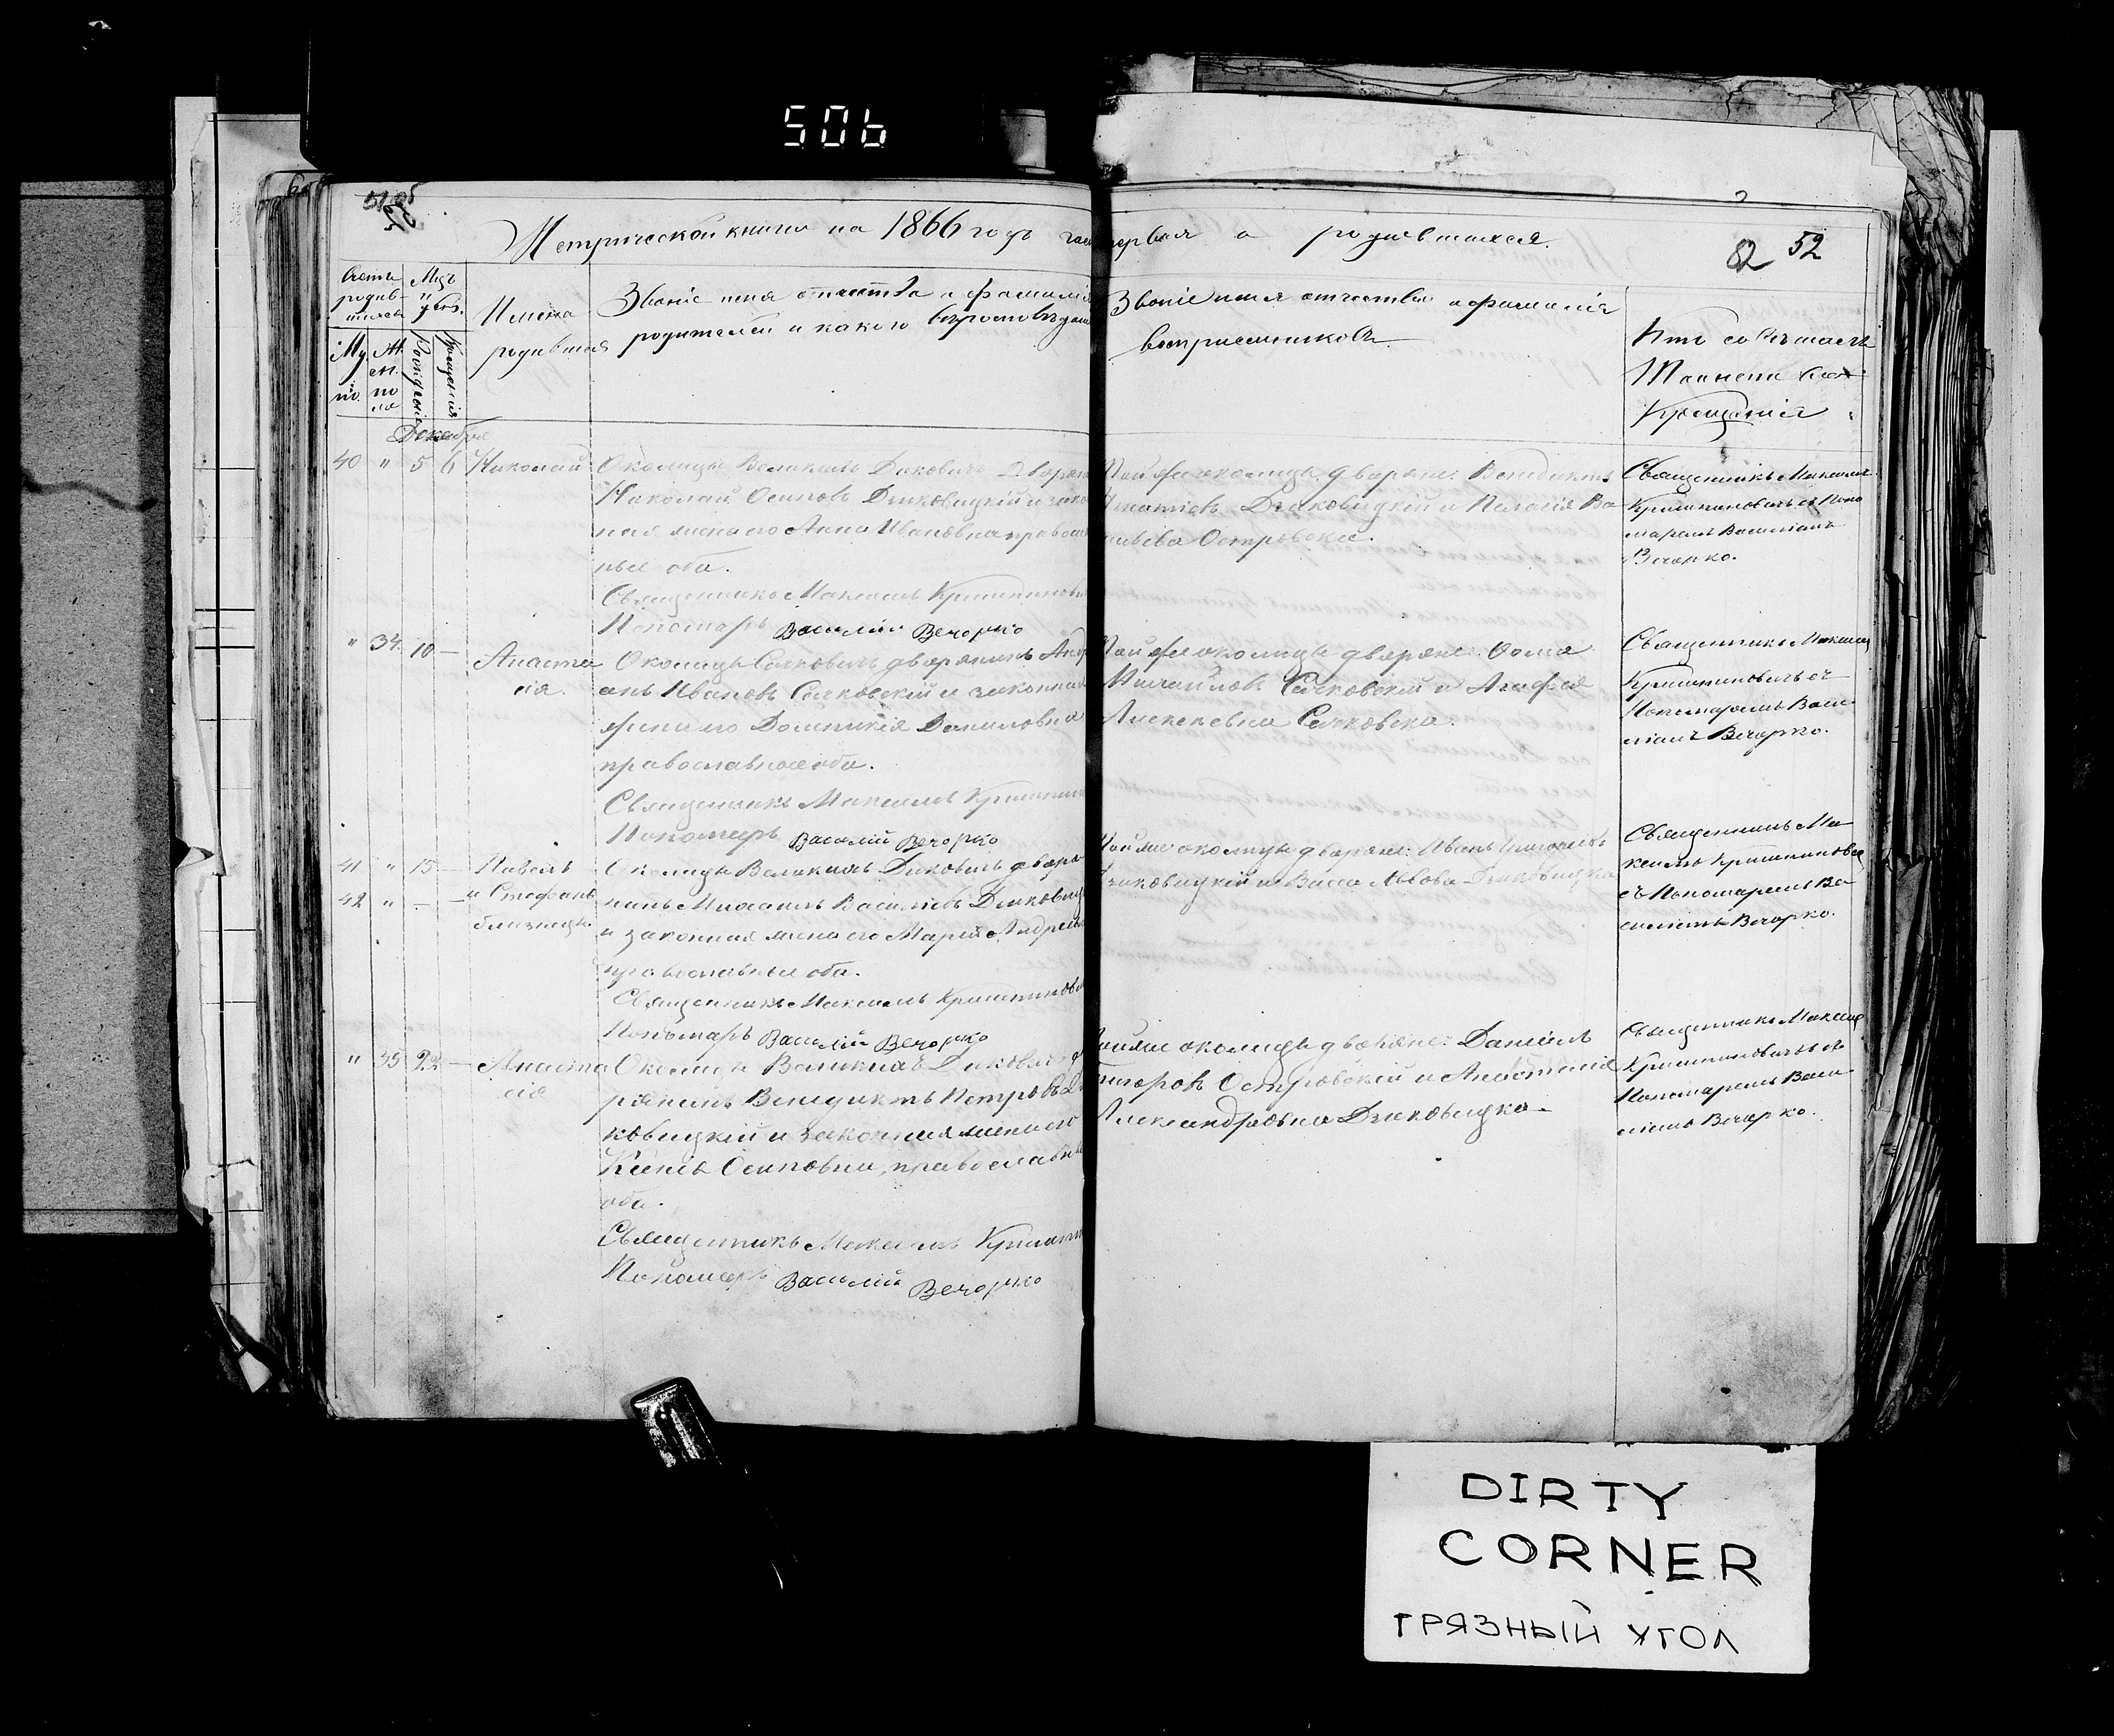 506
Метрической книги на 1866 годъ часть первая о родившихся.
52
Счетъ родившихся
Имена родившихся
Званіе имя отчество и фамилія
родителей и какого вѣроисповѣданія
Званіе имя отчество и фамилія
воспріемниковъ
Кто совершалъ
Таинство
Крещенія
Рожденія
Крещенія
Декабря
40 " 5 6 Николай
Околицы Великихъ Диковичъ Дворян
Николай Осиповъ Дзиковицкій и закон
ная жена его Анна Ивановна православ
ные оба.
Священникъ Максимъ
Пономарь Василій Вечорко
Той же околицы дворяне: Венедиктъ
Игнатіевъ Дзиковицкій и Палагія Ва
Островска.
Священникъ Максимъ
съ Поно
маремъ Василіемъ
Вечорко.
" 34 10 — Анаста
сія.
Околицы Сачковичъ дворянинъ
Ивановъ Сачковскій и законная
жена его Доминикія Даниловна
православные оба.
Священникъ Максимъ
Пономарь Василій Вечорко
Той же околицы дворяне: Ѳома
Михайловъ Сачковскій и Агафія
Алексеевна Сачковска.
Священникъ Максимъ
съ
Пономаремъ Васи
ліемъ Вечорко.
41 " 15 — Павелъ
42 " — — и Стефанъ
близнецы
Околицы Великихъ Диковичъ дворя
нинъ Михаилъ Васильевъ Дзиковиц
и законная жена его Марія Андреев
православные оба.
Священникъ Максимъ
Пономарь Василій Вечорко
Той же околицы дворяне: Иванъ Григорьевъ
Дзиковицкій и Васса Львова Дзиковицка
Священникъ Ма
ксимъ
съ Пономаремъ Ва
силіемъ Вечорко.
" 35 22 — Анаста
сія
Околицы Великихъ Диковичъ дво
рянинъ Венедиктъ Петровъ Дзи
ковицкій и законная жена его
Ксенія Осиповна, православные
оба.
Священникъ Максимъ
Пономарь Василій Вечорко
Той же околицы дворяне: Даніилъ
Островскій и Анастасія
Александровна Дзиковицка
Священникъ Максимъ
съ
Пономаремъ Васи
ліемъ Вечорко.
DIRTY
CORNER
ГРЯЗНЫЙ УГОЛ